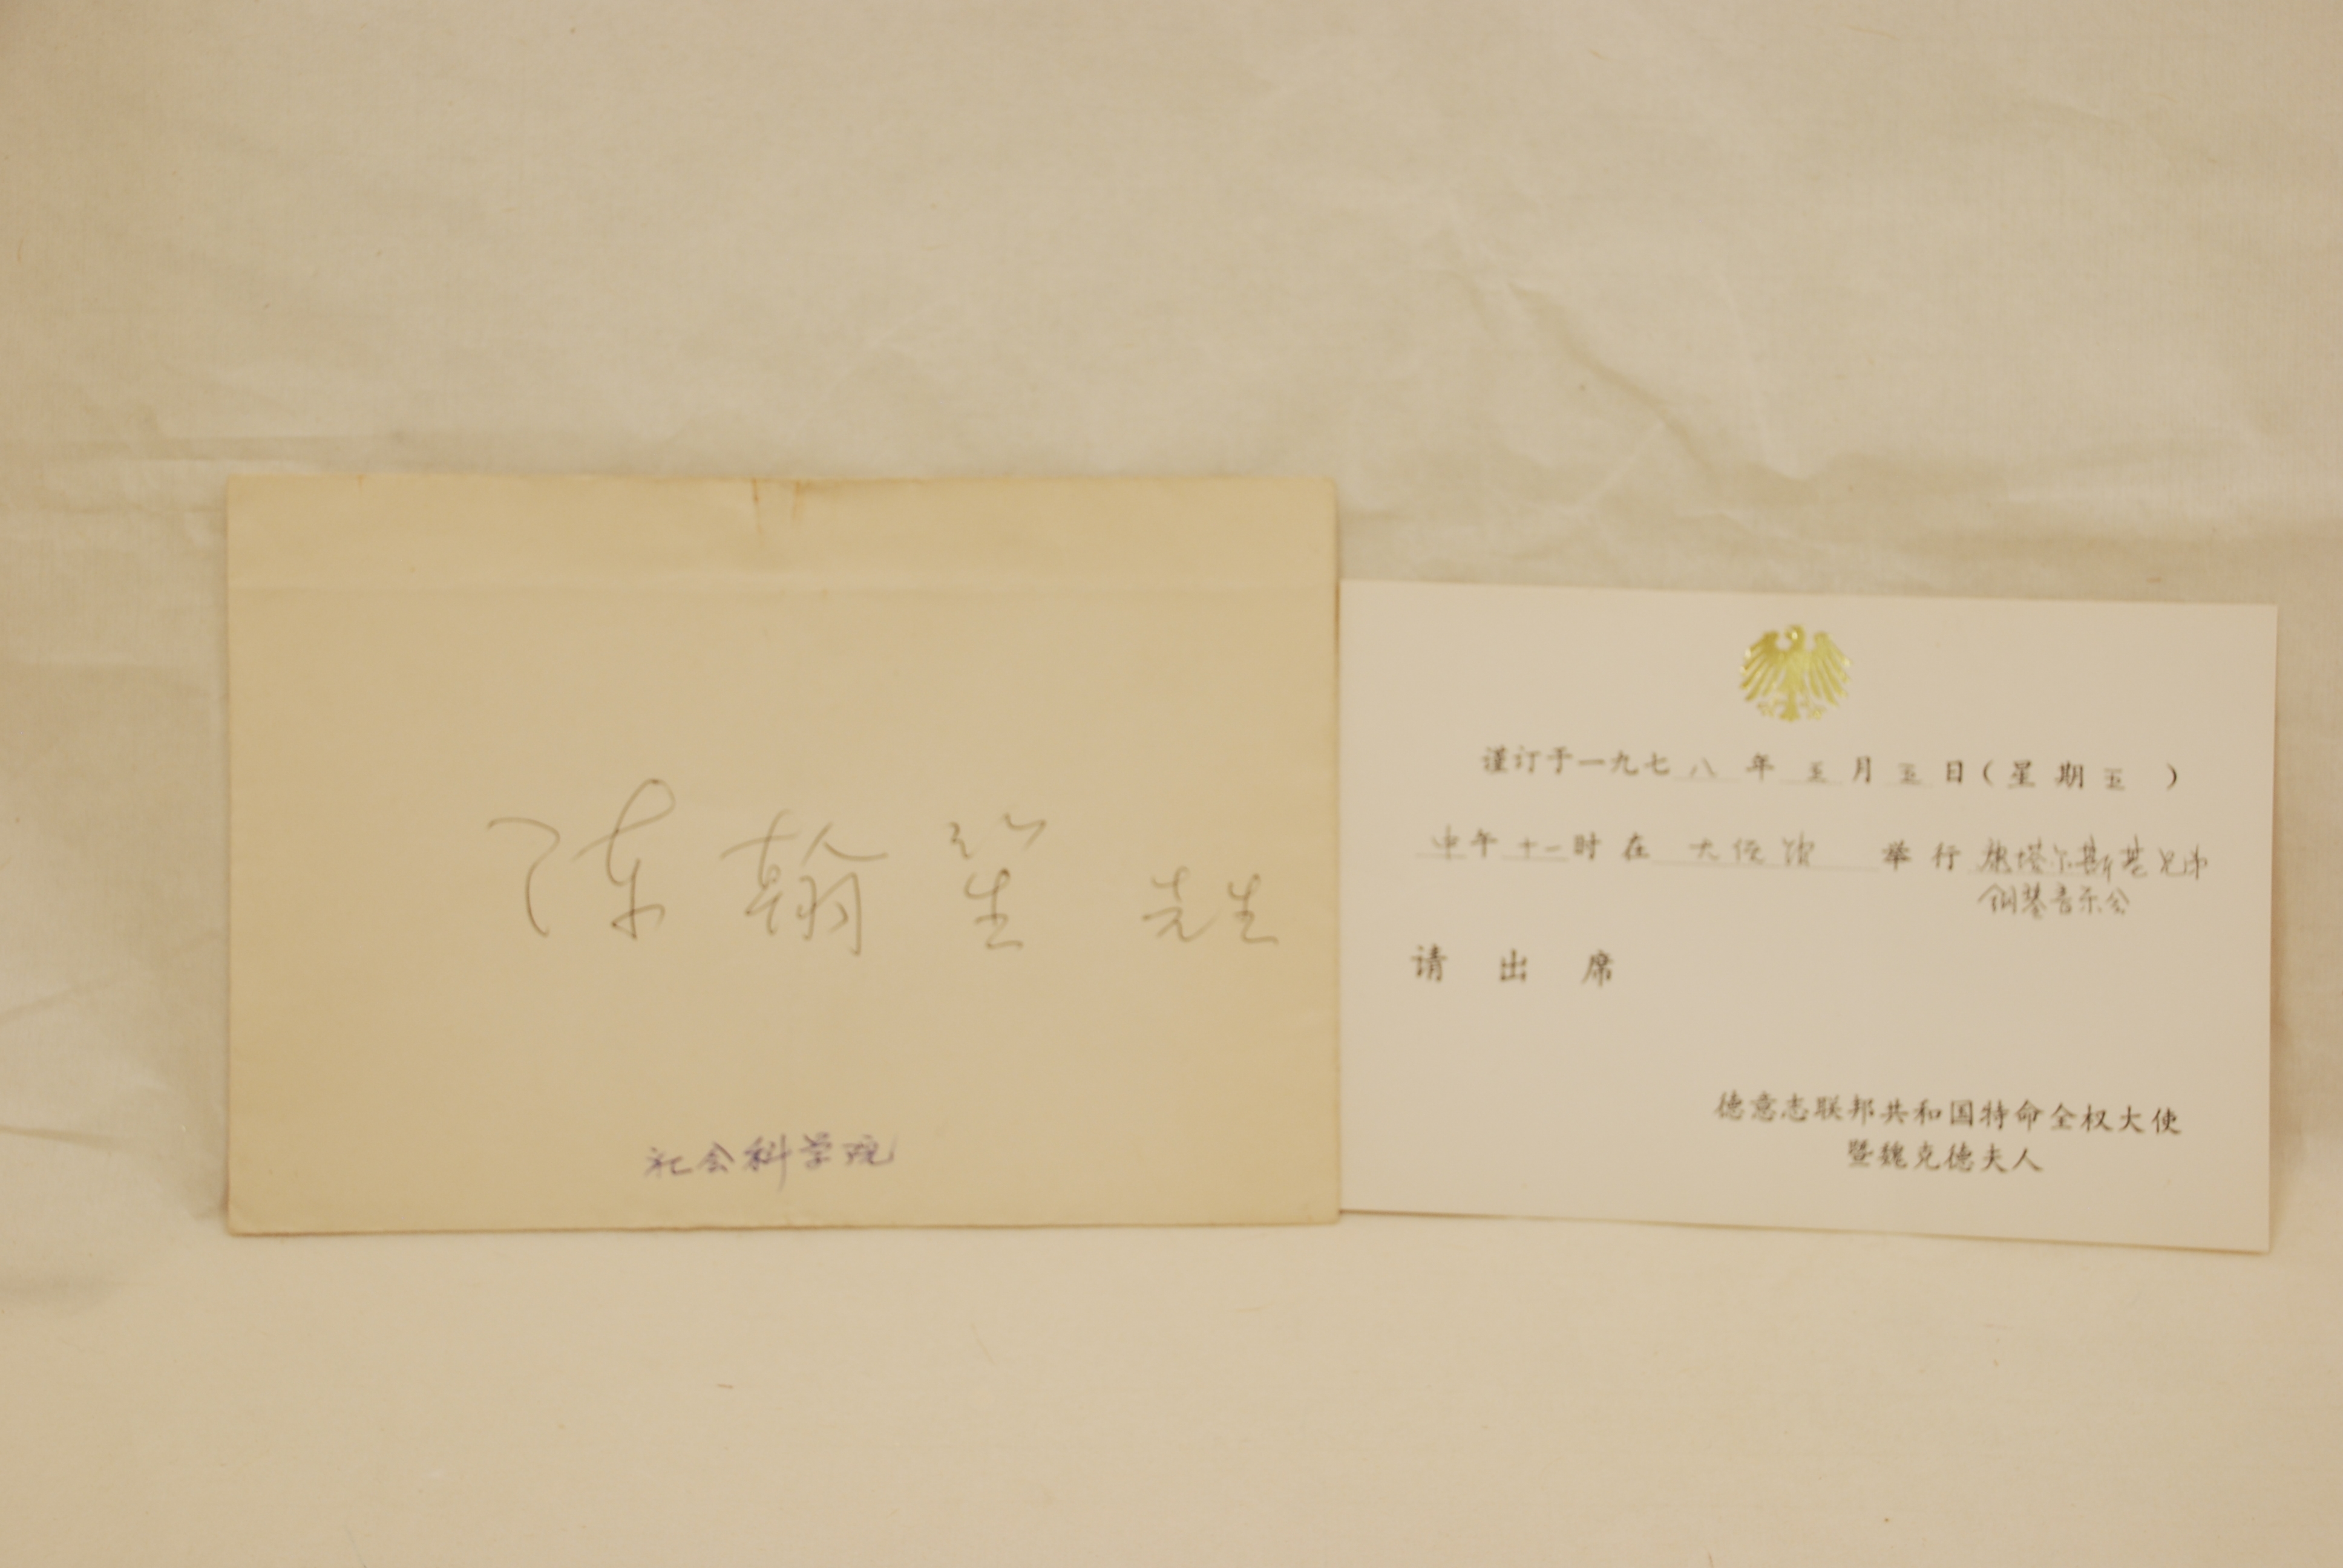 陈翰笙 先生
社会科学院
谨订于一九七八年五月五日（星期五）
中午十一时在大使馆举行施塔尔斯基兄弟
钢琴音乐会
请出席
德意志联邦共和国特命全权大使
暨魏克德夫人